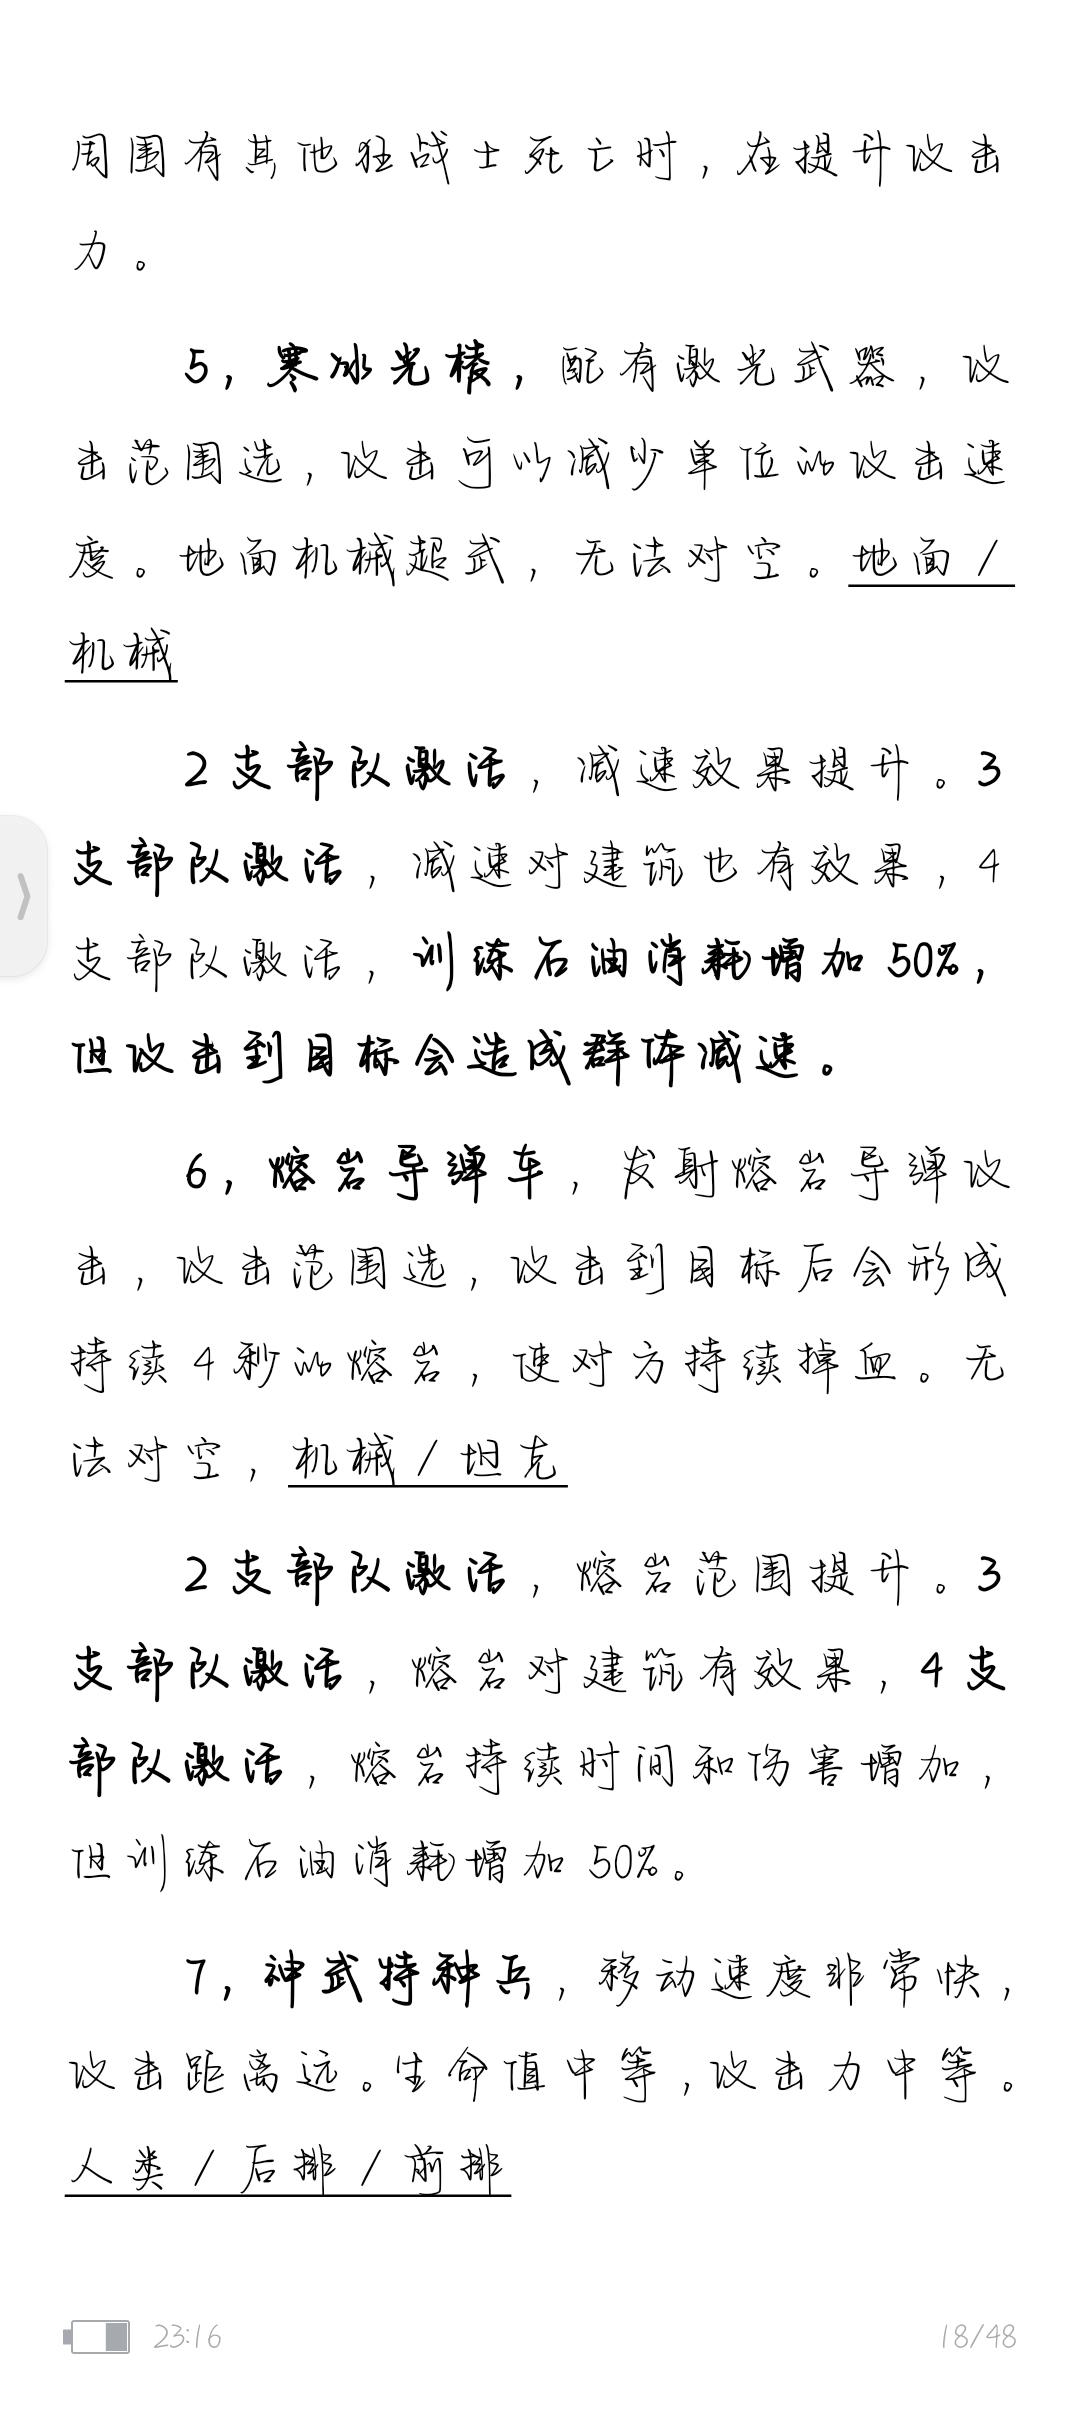 周围有其他狂战士死亡时，在提升攻击
力。
5，寒冰光棱，配有激光武器，攻
击范围选，攻击可以减少单位的攻击速
度。地面机械超武，无法对空。地面/
机械
2支部队激活，减速效果提升。3
支部队激活，减速对建筑也有效果，4
支部队激活，训练石油消耗增加50%，
但攻击到目标会造成群体减速。
6，熔岩导弹车，发射熔岩导弹攻
击，攻击范围选，攻击到目标后会形成
持续4秒的熔岩，使对方持续掉血。无
法对空，机械/坦克
2支部队激活，熔岩范围提升。3
支部队激活，熔岩对建筑有效果，4支
部队激活，熔岩持续时间和伤害增加，
但训练石油消耗增加50%。
7，神武特种兵，移动速度非常快，
攻击距离远。生命值中等，攻击力中等。
人类/后排/前排
23:16
18/48